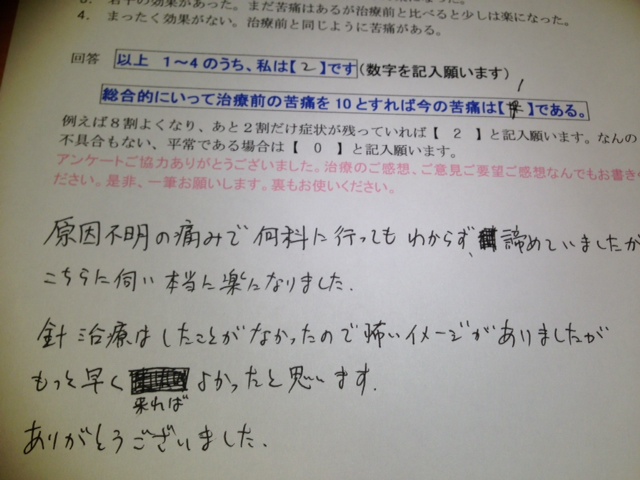 3. 若干の効果があった。まだ苦痛はあるが治療前と比べると少しは楽になった。
4. まったく効果がない。治療前と同じように苦痛がある。
回答 以上 1～4のうち、私は【 2 】です(数字を記入願います)
1
総合的にいって治療前の苦痛を10とすれば今の苦痛は【 】である。
例えば8割よくなり、あと2割だけ症状が残っていれば【 2 】と記入願います。なんの
不具合もない、平常である場合は【 0 】と記入願います。
アンケートご協力ありがとうございました。治療のご感想、ご意見ご要望ご感想なんでもお書きく
ださい。是非、一筆お願いします。裏もお使いください。
原因不明の痛みで何科に行ってもわからず、諦めていましたが
こちらに伺い本当に楽になりました.
針治療はしたことがなかったので怖いイメージがありましたが
もっと早く よかったと思います.
来れば
ありがとうございました.